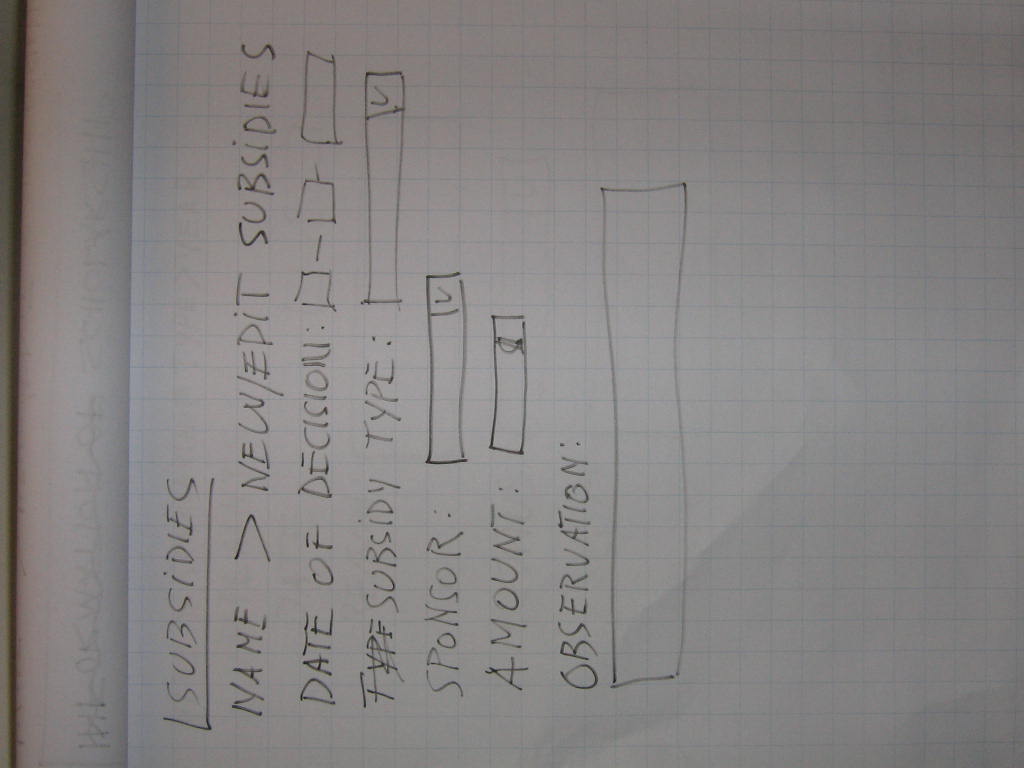 SUBSIDIES
NAME > NEW/EDIT SUBSIDIES
DATE OF DECISION: - -
SUBSIDY TYPE:
SPONSOR:
AMOUNT:
OBSERVATION: